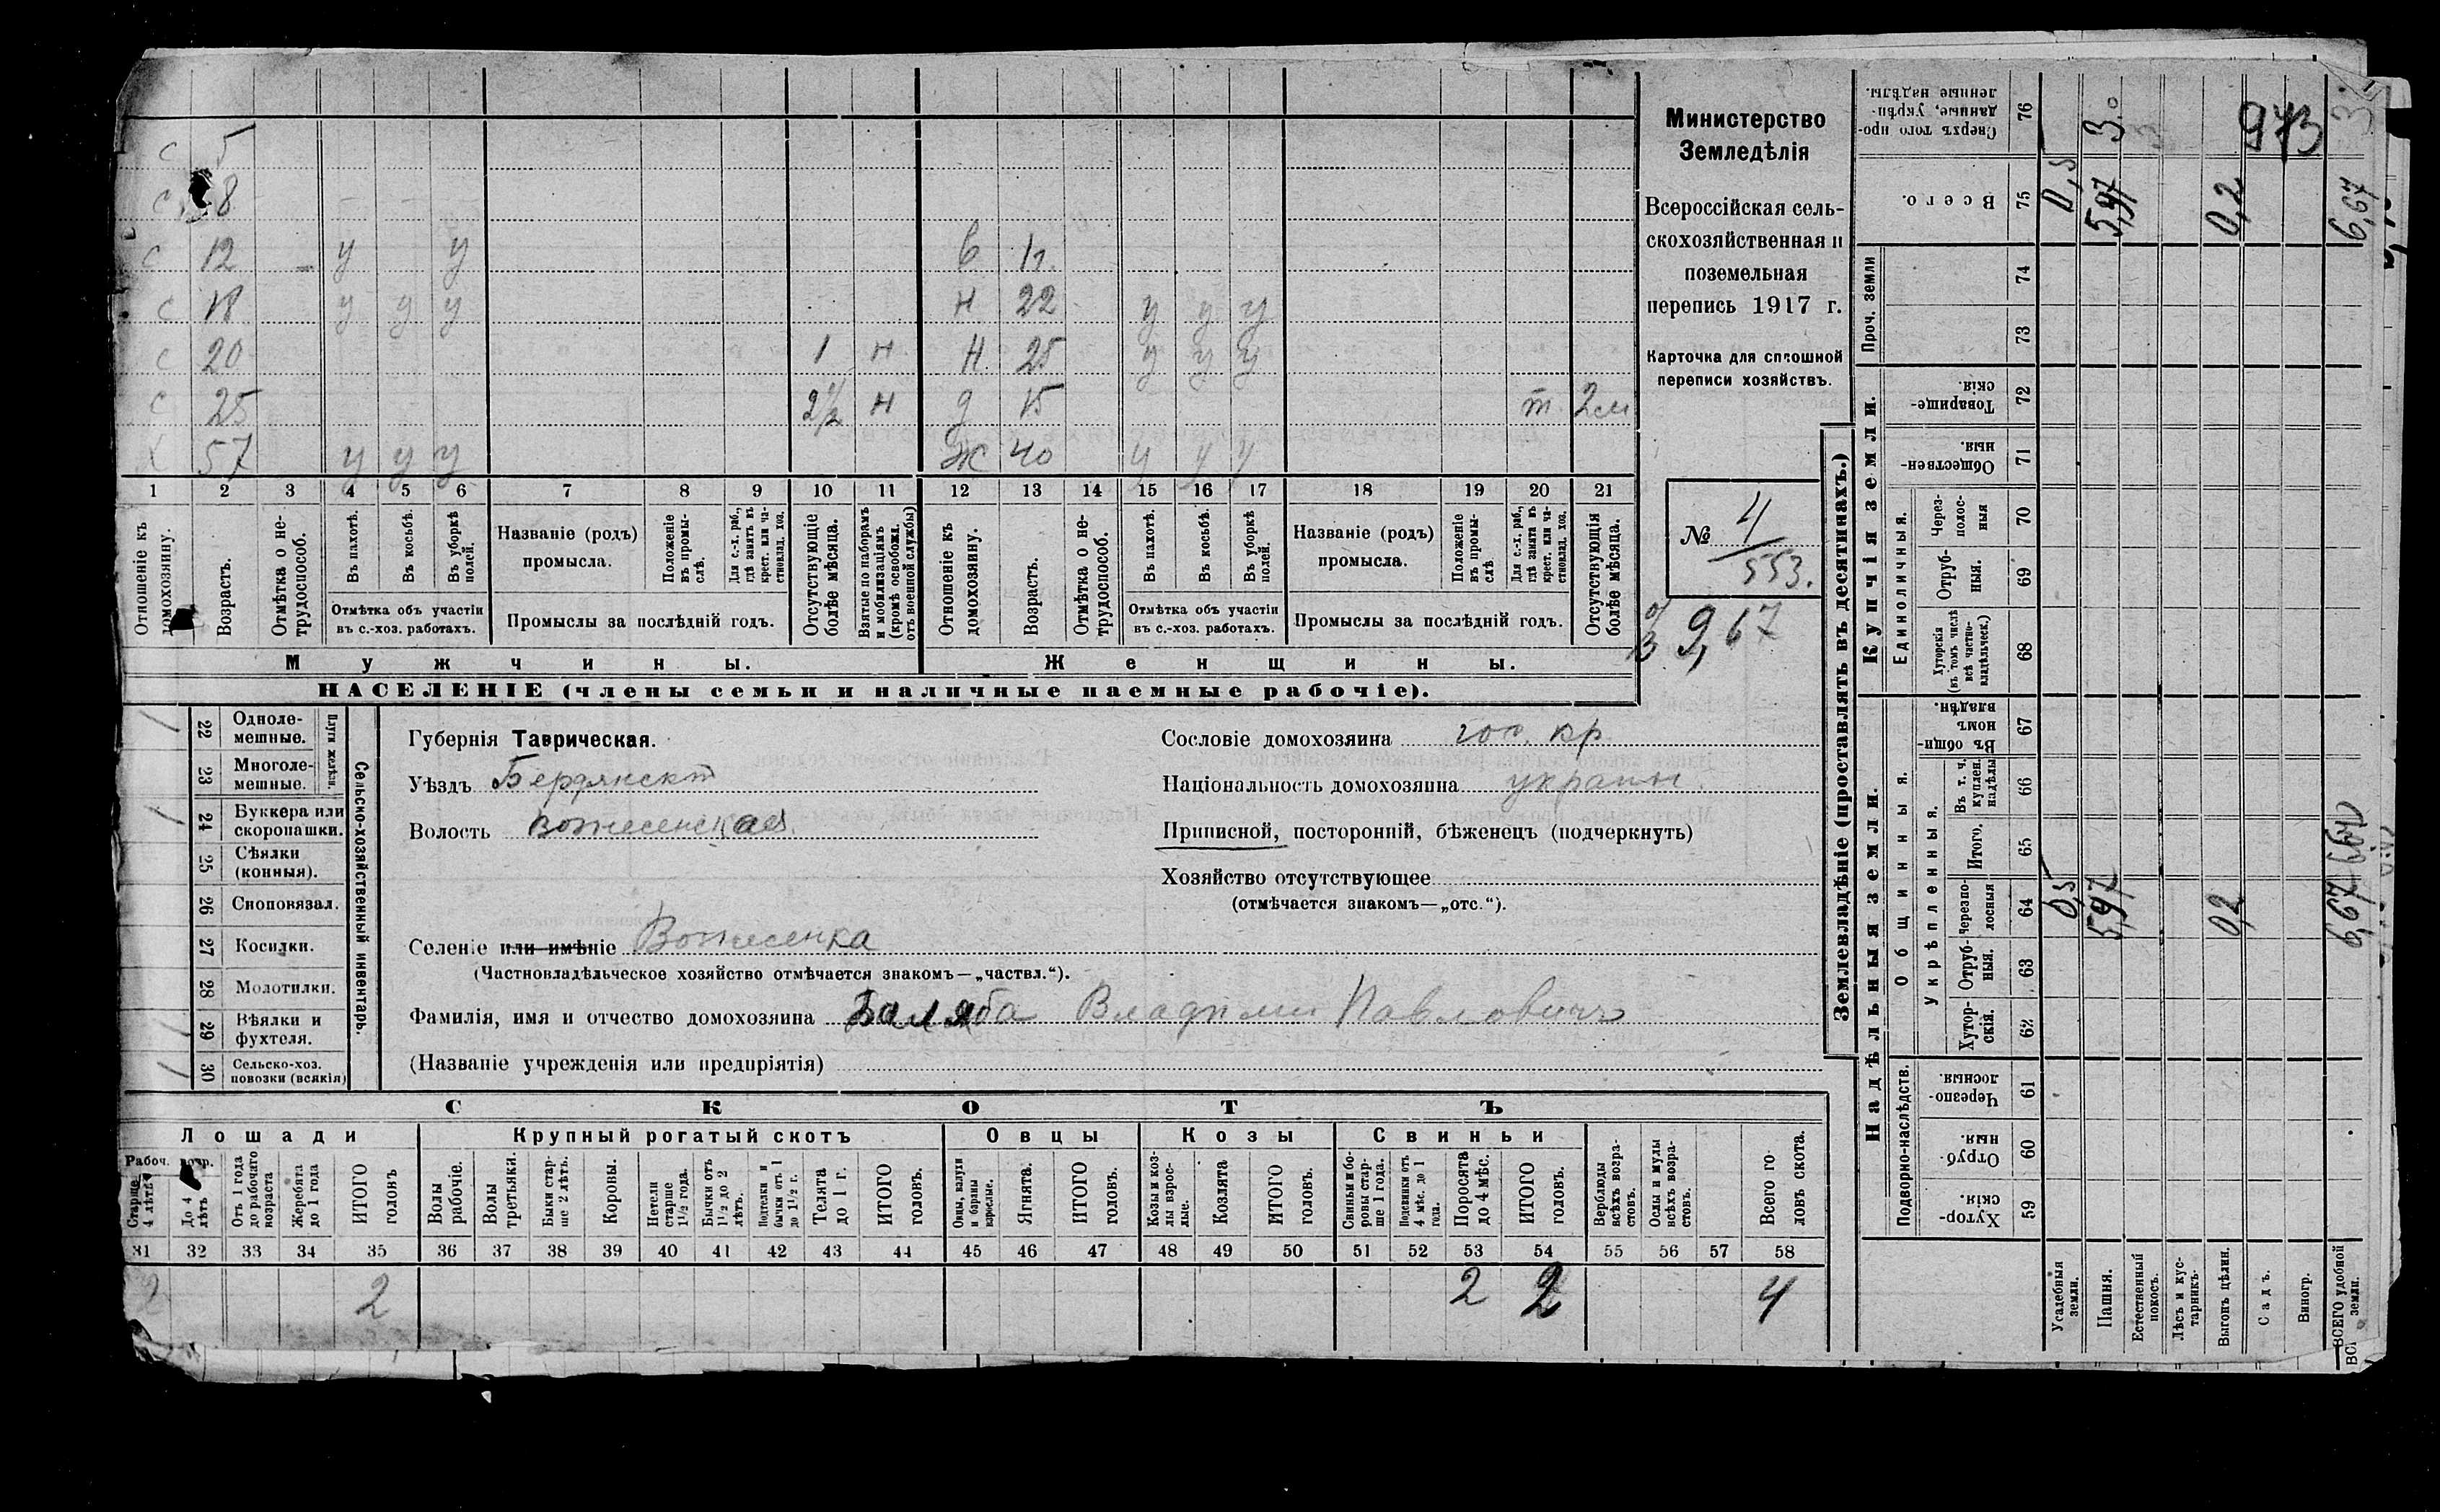 с 5
с 8 - -
с 12 - у у в 1г.
с 18 у у у н 22 у у у
с 20 1 н н 25 у у у
с 25 2½ н д 15 т 2м
х 57 у у у ж 40 у у у
1 2 3 4 5 6 7 8 9 10 11 12 13 14 15 16 17 18 19 20 21
Отношеніе къ домохозяину.
Возрастъ.
Отмѣтка о нетрудоспособ.
Въ пахотѣ.
Въ косьбѣ.
Въ уборкѣ полей.
Отмѣтка объ участіи
въ с.-хоз. работахъ.
Названіе (родъ)
промысла.
Положеніе въ промыслѣ.
Для с.-х. раб., гдѣ занятъ въ крест. или частновлад. хоз.
Промыслы за послѣдній годъ.
Отсутствующіе болѣе мѣсяца.
Взятые по наборамъ и мобилизаціямъ (кромѣ освобожд. отъ военной службы)
Отношеніе къ домохозяину.
Возрастъ.
Отмѣтка о нетрудоспособ.
Въ пахотѣ.
Въ косьбѣ.
Въ уборкѣ полей.
Отмѣтка объ участіи
въ с.-хоз. работахъ.
Названіе (родъ)
промысла.
Положеніе въ промыслѣ
Для с.-х. раб., гдѣ занята въ крест. или частновлад. хоз.
Промыслы за послѣдній годъ.
Отсутствующія болѣе мѣсяца.
Мужчины. Женщины.
НАСЕЛЕНІЕ (члены семьи и наличные наемные рабочіе).
Министерство
Земледѣлія
Всероссійская сель-
скохозяйственная и
поземельная
перепись 1917 г.
Карточка для сплошной
переписи хозяйствъ.
№ 4
553.
9,67
/ 22 Одноле-
мешные.
23 Многоле-
мешные.
Плуги желѣзн.
/ 24 Буккера или
скоропашки.
25 Сѣялки
(конныя).
26 Сноповязал.
27 Косилки.
28 Молотилки.
/ 29 Вѣялки и
фухтеля.
/ 30 Сельско-хоз.
повозки (всякія)
Сельско-хозяйственный инвентарь.
Губернія Таврическая.
Уѣздъ Бердянскт
Волость Вознесенская
Сословіе домохозяина гос. кр.
Національность домохозяина украин.
Приписной, посторонній, бѣженецъ (подчеркнуть)
Хозяйство отсутствующее
(отмѣчается знакомъ—„отс.“).
Селеніе или имѣніе Вознесенка
(Частновладѣльческое хозяйство отмѣчается знакомъ—„частвл.“).
Фамилія, имя и отчество домохозяина Баляба Владимир Павловичъ
(Названіе учрежденія или предпріятія)
СКОТЪ
Лошади Крупный рогатый скотъ Овцы Козы Свиньи
Рабоч. возр.
Старше 4 лѣтъ
До 4 лѣтъ
Отъ 1 года до рабочаго возраста
Жеребята до 1 года
ИТОГО головъ
Волы рабочіе.
Волы третьяки.
Быки старше 2 лѣтъ.
Коровы.
Нетели старше 1½ года.
Бычки отъ 1½ до 2 лѣтъ.
Подтелки и бычки отъ 1 до 1½ г.
Телята до 1 г.
ИТОГО головъ.
Овцы, валухи и бараны взрослые.
Ягнята.
ИТОГО головъ.
Козы и козлы взрослые.
Козлята
ИТОГО головъ.
Свиньи и боровы старше 1 года.
Подсвинки отъ 4 мѣс. до 1 года.
Поросята до 4 мѣс.
ИТОГО головъ.
Верблюды всѣхъ возрастовъ.
Ослы и мулы всѣхъ возрастовъ.
Всего головъ скота.
31 32 33 34 35 36 37 38 39 40 41 42 43 44 45 46 47 48 49 50 51 52 53 54 55 56 57 58
2 2 2 2 4
Землевладѣніе (проставлять въ десятинахъ.)
Надѣльныя земли. Купчія земли. Проч. земли
Подворно-наслѣдств.
Общинныя.
Укрѣпленныя.
Единоличныя.
Сверхъ того проданные, укрѣпленные надѣлы. 76
Всего. 75
74
73
Товарищескія. 72
Общественныя. 71
Черезполосныя 70
Отрубныя. 69
Хуторскія (въ томъ числѣ всѣ частновладѣльческ.) 68
Въ общинномъ владѣн. 67
Въ т. ч. куплен. надѣлы 66
Итого. 65
Черезполосныя 64
Отрубныя. 63
Хуторскія. 62
Черезполосныя. 61
Отрубныя. 60
Хуторскія. 59
Усадебныя земли. 0,5 0,5
Пашня. 5,97 5,97 3.
Естественный покосъ. 3
Лѣсъ и кустарникъ.
Выгонъ цѣлин. 0,2 0,2
Садъ. 973
Виногр.
ВСЕГО удобной земли. 6,67 6,67 3.